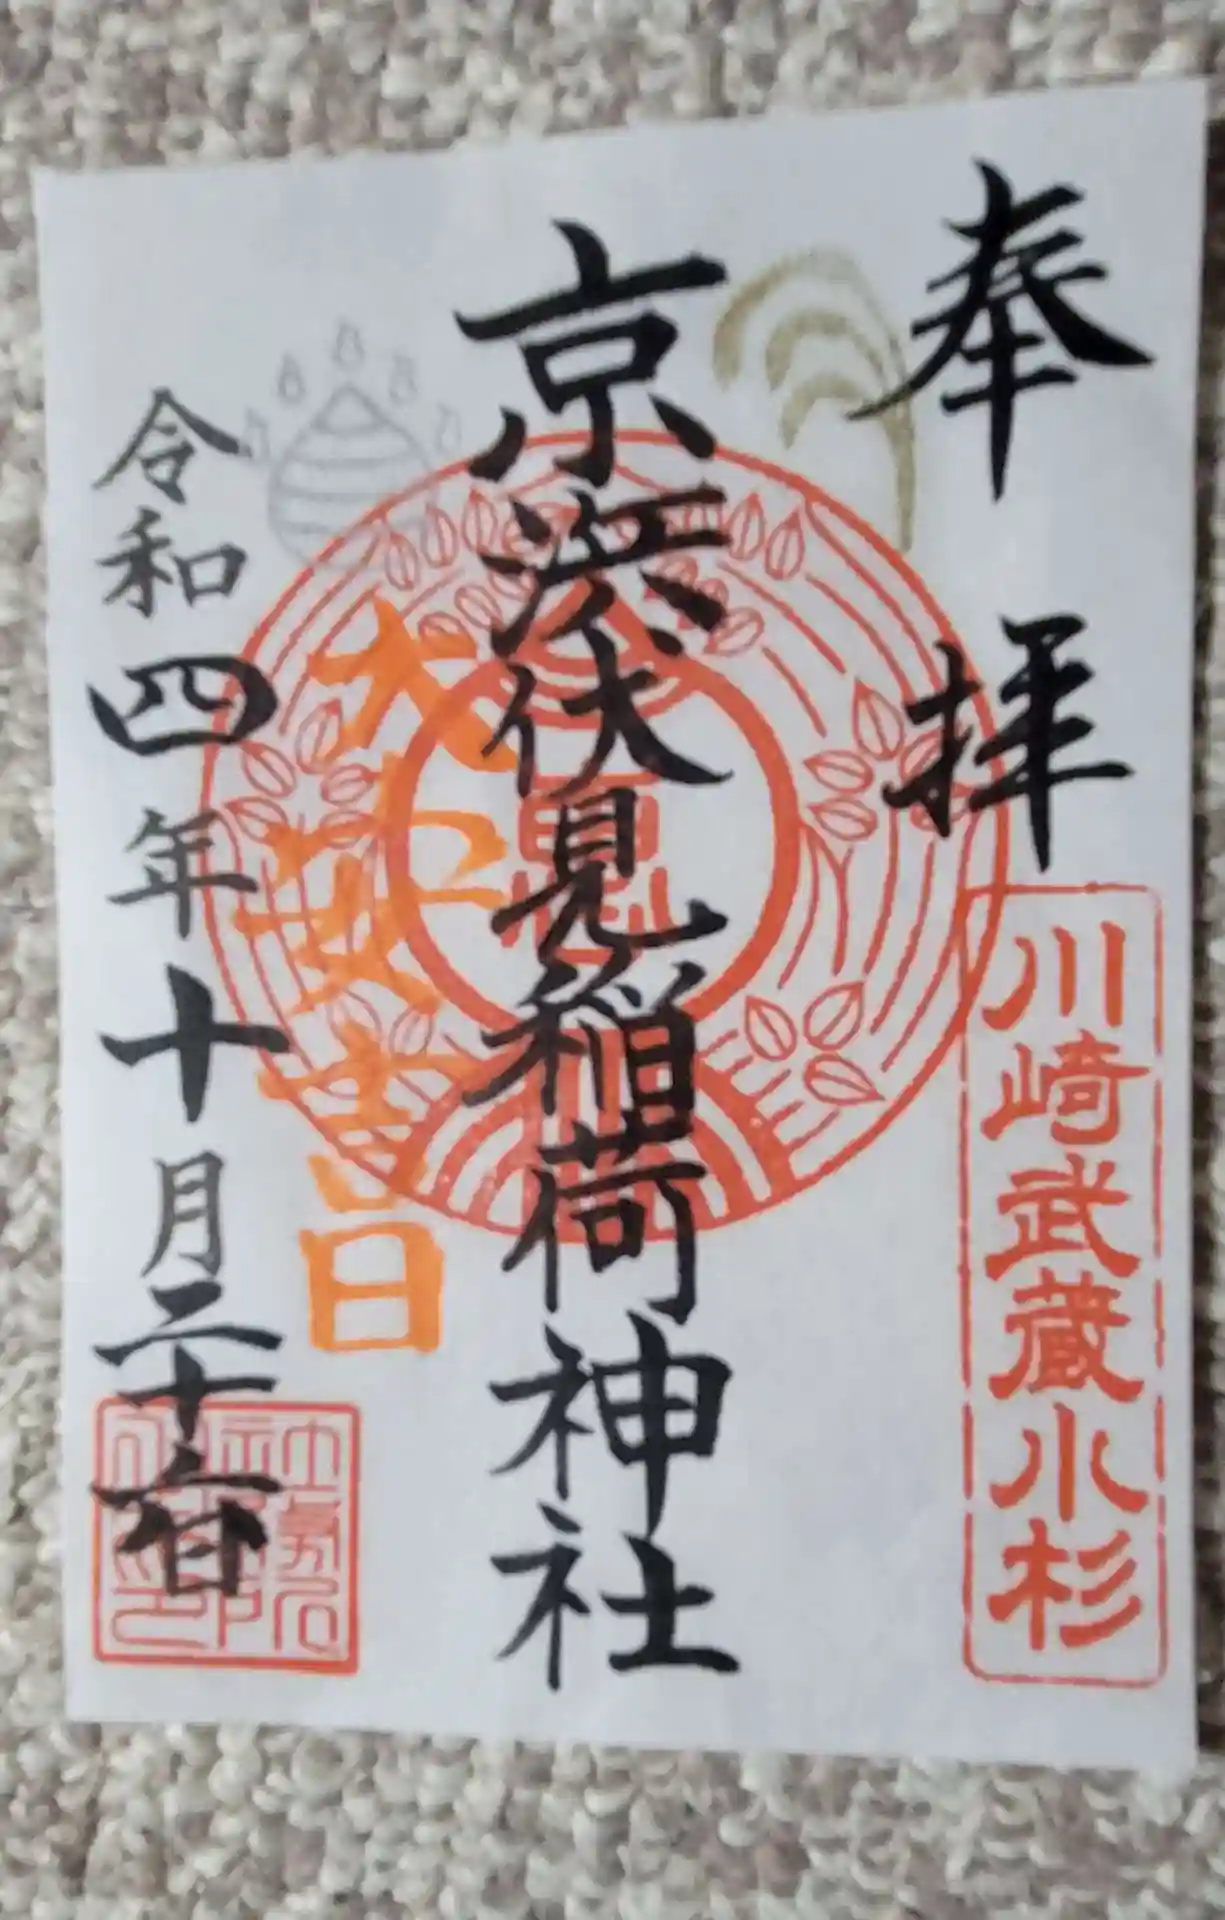 奉拝
川崎武蔵小杉
京浜伏見稲荷神社
大安吉日
令和四年十月二十六日